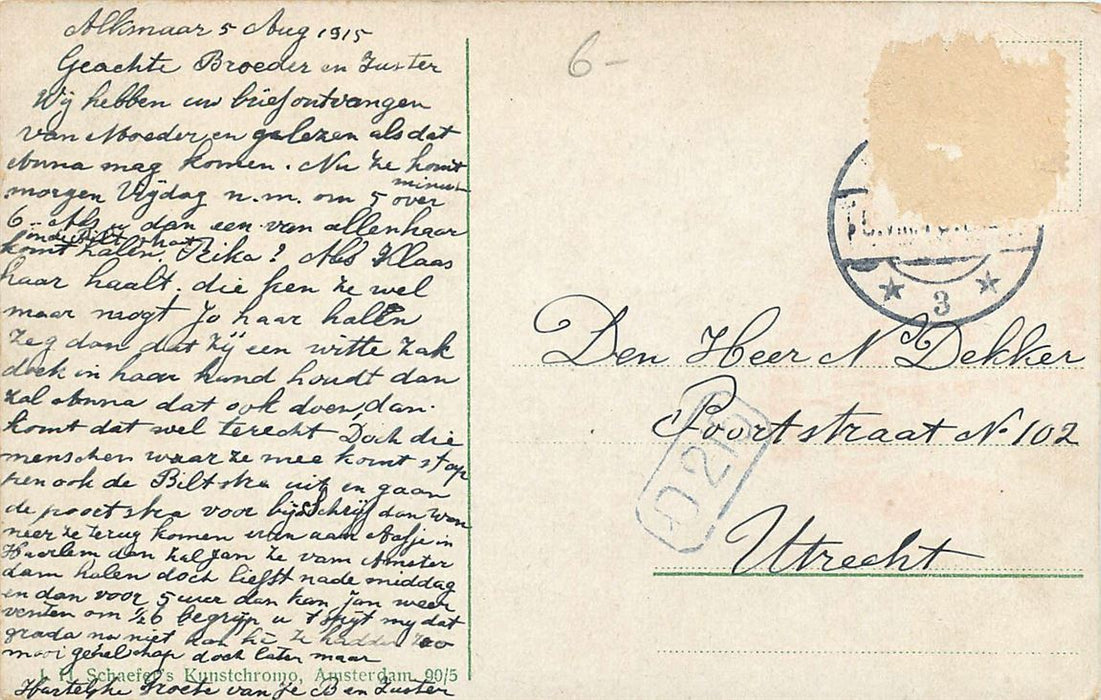 Alkmaar 5 Aug 1915
Geachte Broeder en Zuster
Wij hebben uw brief ontvangen
van Moeder en gelezen als dat
Anna mag komen. Nu ze komt
morgen Vrijdag n.m. om 5 minuut over
6 - Als u dan een van allen haar
in de Biltstraat
komt halen. Rika? Als Klaas
haar haalt. die ken ze wel
maar mogt Jo haar halen
zeg dan dat zij een witte zak
doek in haar hand houdt dan
zal Anna dat ook doen, dan
komt dat wel terecht Doch die
menschen waar ze mee komt stap
pen ook de Biltstra uit en gaan
de poortstra voor bij Schrijf dan wan
neer ze terug komen aan Aafje in
Haarlem dan zal Jan ze van Amster
dam halen doch liefst na de middag
en dan voor 5 uur dan kan Jan weer
venten om ½6 begrijp u t spijt my dat
grada nu niet kan ze hadden zoo
mooi gezelschap doch later maar
Hartelyke Groete van Je B en Zuster
J. H. Schaefer's Kunstchromo, Amsterdam 90/5
6-
3
Den Heer N Dekker
Poortstraat No 102
Utrecht